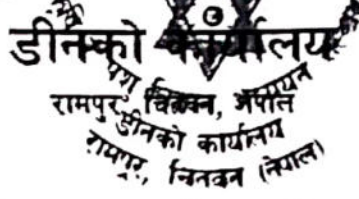 डीनको कार्यालय
पशु
रामपुर, चितवन, नेपाल
डीनको कार्यालय
रामपुर, चितवन (नेपाल)